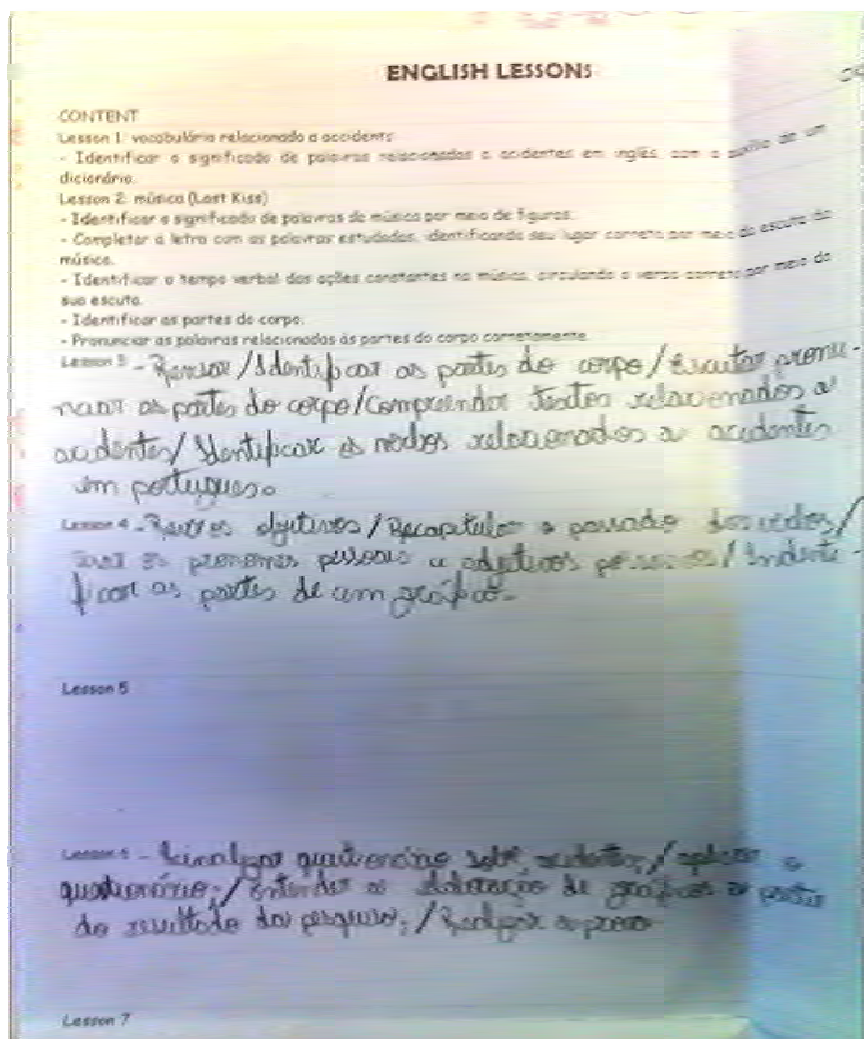 ENGLISH LESSONS
CONTENT
Lesson 1: vocabulário relacionado a accidents
- Identificar o significado de palavras relacionadas a acidentes em inglês, com o auxílio de um
dicionário.
Lesson 2: música (Last Kiss)
- Identificar o significado de palavras da música por meio de figuras.
- Completar a letra com as palavras estudadas, identificando seu lugar correto por meio da escuta da
música.
- Identificar o tempo verbal das ações constantes na música, circulando o verso correto por meio da
sua escuta.
- Identificar as partes do corpo.
- Pronunciar as palavras relacionadas às partes do corpo corretamente.
Lesson 3 - /Identificar as partes do corpo/Escutar pronu-
nciar as partes do corpo/Compreender textos relacionados a
acidentes/Identificar os verbos relacionados a acidentes
em portugues.
Lesson 4 - adjetivos/Recapitular o passado dos verbos/
os pronomes pessoais e adjetivos possessivos/Indenti-
ficar as partes de um gráfico.
Lesson 5
Lesson 6 - questionário sobre acidentes;/aplicar o
questionário;/Entender a elaboração de gráficos a partir
do resultado da pesquisa;/
Lesson 7